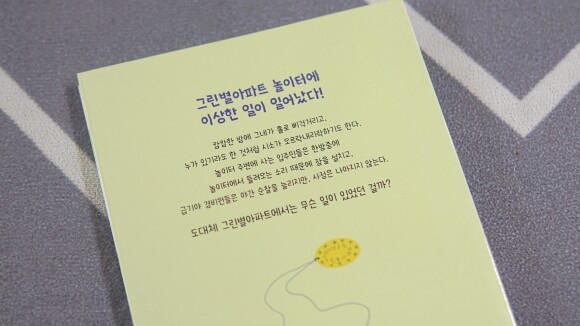 그린별아파트 놀이터에
이상한 일이 일어났다!
깜깜한 밤에 그네가 홀로 삐걱거리고,
누가 있기라도 한 것처럼 시소가 오르락내리락하기도 한다.
놀이터 주변에 사는 입주민들은 한밤중에
놀이터에서 들려오는 소리 때문에 잠을 설치고,
급기야 경비원들은 야간 순찰을 늘리지만, 사정은 나아지지 않는다.
도대체 그린별아파트에서는 무슨 일이 있었던 걸까?